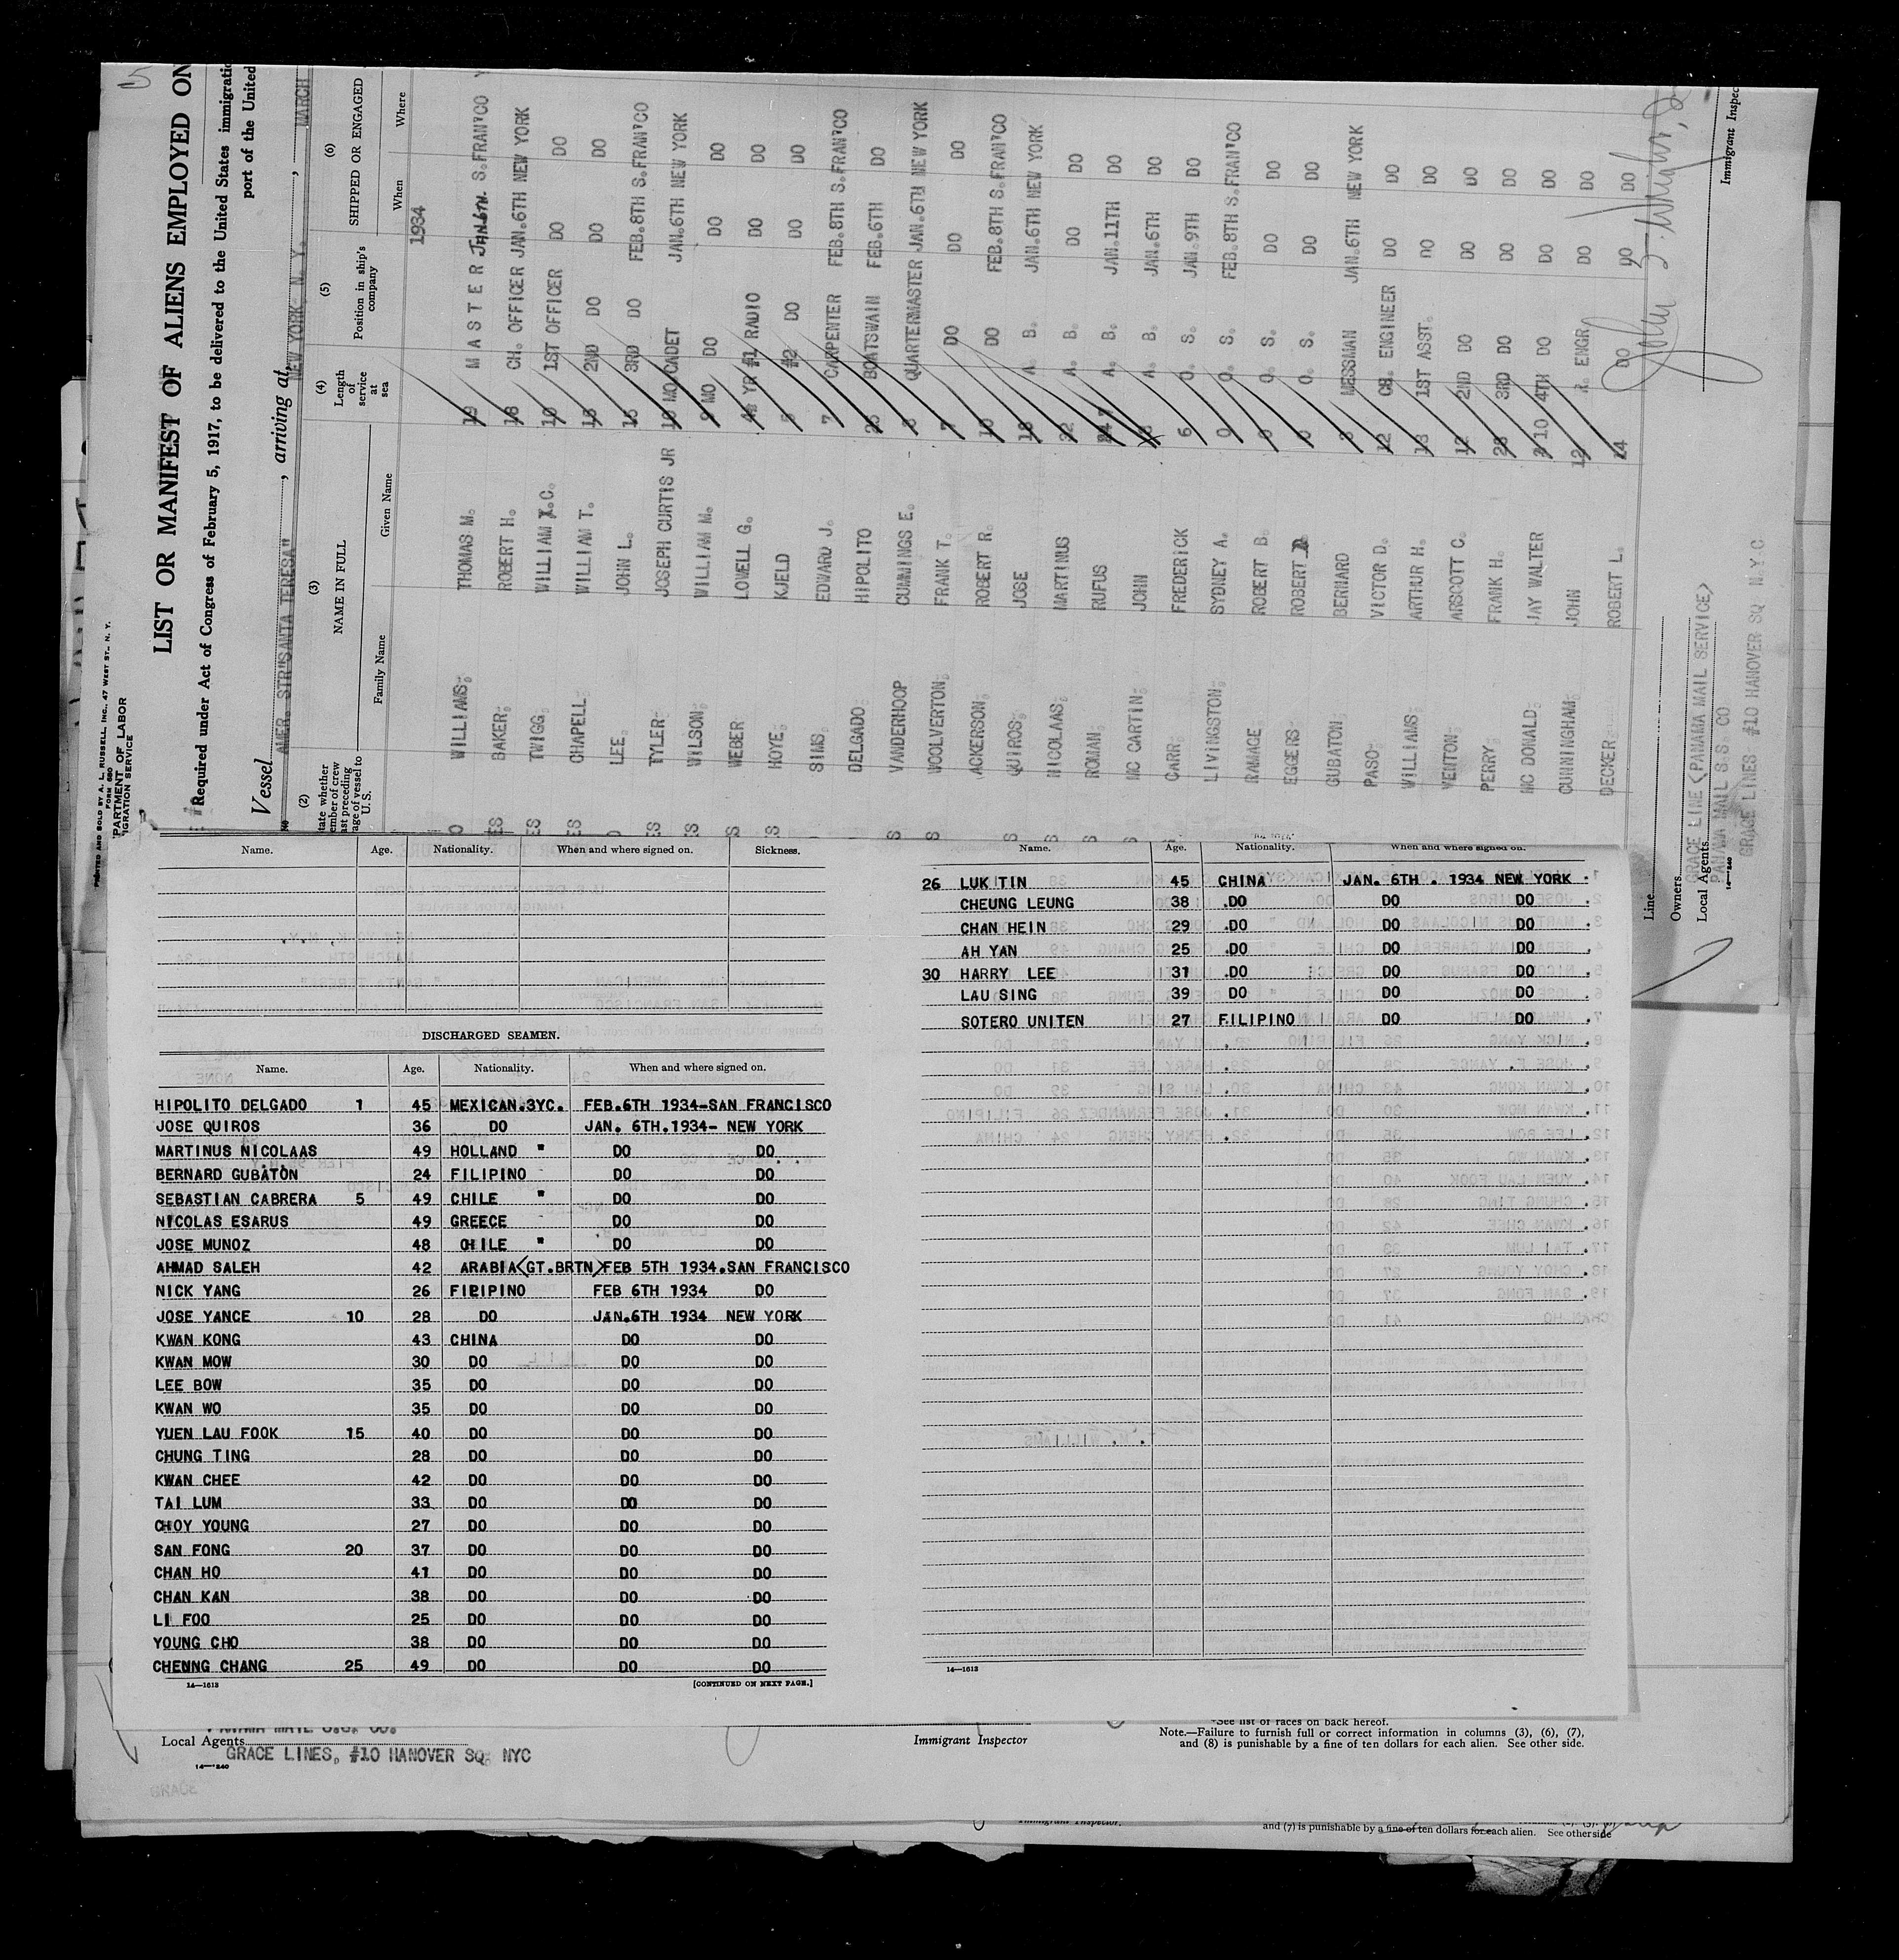 PRINTED AND SOLD BY A. L. RUSSELL, INC., 47 WEST ST., N. Y.
FORM 680
PARTMENT OF LABOR
IGRATION SERVICE
LIST OR MANIFEST OF ALIENS EMPLOYED ON
Required under Act of Congress of February 5, 1917, to be delivered to the United States immigratio
port of the United
Vessel AMER. STR"SANTA TERESA", arriving at NEW YORK, N. Y., MARCH
(2) (3) (4) (5) (6)
tate whether
ember of crew
ast preceding
age of vessel to
U. S.
NAME IN FULL
Family Name Given Name
Length of service at sea
Position in ship's company
SHIPPED OR ENGAGED
When Where
1934
WILLIAMS THOMAS M. 19 MASTER JAN.6TH. S.FRAN'CO
BAKER ROBERT H. 18 CH. OFFICER JAN.6TH NEW YORK
TWIGG WILLIAM X.C. 10 1ST OFFICER DO DO
CHAPELL WILLIAM T. 15 2ND DO DO DO
LEE JOHN L. 15 3RD DO FEB.8TH S.FRAN'CO
TYLER JOSEPH CURTIS JR 10 MO CADET JAN.6TH NEW YORK
WILSON WILLIAM M. 9 MO DO DO DO
WEBER LOWELL G. 4½ YR #1 RADIO DO DO
HOYE KJELD 5 #2 DO DO DO
SIMS EDWARD J. 7 CARPENTER FEB.8TH S.FRAN'CO
DELGADO HIPOLITO 25 BOATSWAIN FEB.6TH DO
VANDERHOOP CUMMINGS E. 8 QUARTERMASTER JAN.6TH NEW YORK
WOOLVERTON FRANK T. 7 DO DO DO
ACKERSON ROBERT R. 10 DO FEB.8TH S.FRAN'CO
QUIROS JOSE 18 A. B. JAN.6TH NEW YORK
NICOLAAS MARTINUS 32 A. B. DO DO
ROMAN RUFUS A. B. JAN.11TH DO
MC CARTIN JOHN A. B. JAN.6TH DO
CARR FREDERICK 6 O. S. JAN.9TH DO
LIVINGSTON SYDNEY A. 0 O. S. FEB.8TH S.FRAN'CO
RAMAGE ROBERT B. 0 O. S. DO DO
EGGERS ROBERT 0 O. S. DO DO
GUBATON BERNARD 3 MESSMAN JAN.6TH NEW YORK
PASO VICTOR D. 12 CH. ENGINEER DO DO
WILLIAMS ARTHUR H. 13 1ST ASST. DO DO
VENTON ARSCOTT C. 12 2ND DO DO DO
PERRY FRANK H. 28 3RD DO DO DO
MC DONALD JAY WALTER 10 4TH DO DO DO
CUNNINGHAM JOHN 12 R. ENGR DO DO
DECKER ROBERT L. 14 DO DO DO
Immigrant Inspec
Line GRACE LINE (PANAMA MAIL SERVICE)
Owners PANAMA MAIL S.S. CO
Local Agents GRACE LINES #10 HANOVER SQ N.Y.C
14—1240
Name. Age. Nationality. When and where signed on. Sickness.
DISCHARGED SEAMEN.
Name. Age. Nationality. When and where signed on.
HIPOLITO DELGADO 1 45 MEXICAN.3YC. FEB.6TH 1934-SAN FRANCISCO
JOSE QUIROS 36 DO JAN. 6TH.1934- NEW YORK
MARTINUS NICOLAAS 49 HOLLAND " DO DO
BERNARD GUBATON 24 FILIPINO DO DO
SEBASTIAN CABRERA 5 49 CHILE " DO DO
NICOLAS ESARUS 49 GREECE DO DO
JOSE MUNOZ 48 CHILE " DO DO
AHMAD SALEH 42 ARABIA(GT.BRTN)FEB 5TH 1934.SAN FRANCISCO
NICK YANG 26 FILIPINO FEB 6TH 1934 DO
JOSE YANCE 10 28 DO JAN.6TH 1934 NEW YORK
KWAN KONG 43 CHINA DO DO
KWAN MOW 30 DO DO DO
LEE BOW 35 DO DO DO
KWAN WO 35 DO DO DO
YUEN LAU FOOK 15 40 DO DO DO
CHUNG TING 28 DO DO DO
KWAN CHEE 42 DO DO DO
TAI LUM 33 DO DO DO
CHOY YOUNG 27 DO DO DO
SAN FONG 20 37 DO DO DO
CHAN HO 41 DO DO DO
CHAN KAN 38 DO DO DO
LI FOO 25 DO DO DO
YOUNG CHO 38 DO DO DO
CHEUNG CHANG 25 49 DO DO DO
14—1613 [CONTINUED ON NEXT PAGE.]
Name. Age. Nationality. When and where signed on.
26 LUK TIN 45 CHINA JAN. 6TH . 1934 NEW YORK
CHEUNG LEUNG 38 DO DO DO
CHAN HEIN 29 DO DO DO
AH YAN 25 DO DO DO
30 HARRY LEE 31 DO DO DO
LAU SING 39 DO DO DO
SOTERO UNITEN 27 FILIPINO DO DO
14—1613
PANAMA MAIL S.S. CO.
Local Agents
GRACE LINES, #10 HANOVER SQ. NYC
14—1240
GRACE
Immigrant Inspector
See list of races on back hereof.
Note.—Failure to furnish full or correct information in columns (3), (6), (7),
and (8) is punishable by a fine of ten dollars for each alien. See other side.
Immigrant Inspector.
and (7) is punishable by a fine of ten dollars for each alien. See other side